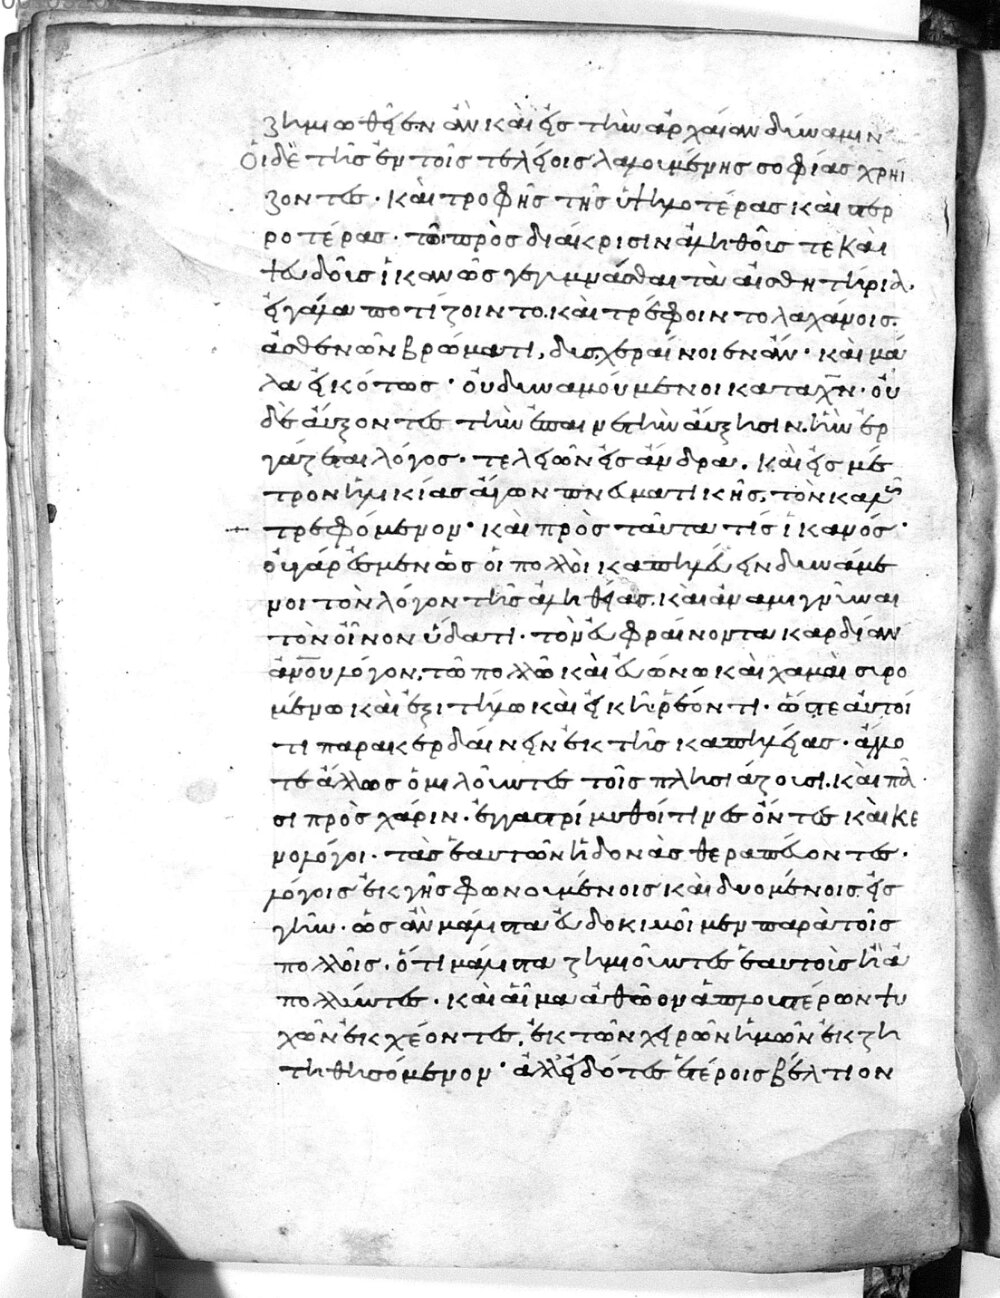 ζημιωθεῖεν ἂν καὶ εἰς τὴν ἀρχαίαν δύναμιν
Οἱ δὲ τῆς ἐν τοῖς τελείοις λαλουμένης σοφίας χρήι
ζοντες · καὶ τροφῆς τῆς ὑψηλοτέρας καὶ στερ
ροτέρας · τῶι πρὸς διάκρισιν ἀληθοῦς τε καὶ
ψευδοῦς ἱκανῶς γεγυμνάσθαι τὰ αἰσθητήρια ·
εἰ γάλα ποτίζοιντο. καὶ τρέφοιντο λαχάνοις.
ἀσθενῶν βρώματι, δυσχεραίνοιεν ἄν · καὶ μά
λα εἰκότως · οὐ δυναμούμενοι κατα χ̅ν̅ · οὐ
δὲ αὔξοντες τὴν ἐπαινετὴν αὔξησιν. ἣν ἐρ
γάζεται λόγος · τελειῶν εἰς ἄνδρα. καὶ εἰς μέ
τρον ἡλικίας ἄγων πνευματικῆς, τὸν καλῶς
τρεφόμενον · καὶ πρὸς ταῦτα τίς ἱκανός ·
οὐ γάρ ἐσμεν ὡς οἱ πολλοὶ καπηλεύειν δυνάμε
νοι τὸν λόγον τῆς ἀληθείας. καὶ ἀναμιγνύναι
τὸν οἶνον ὕδατι · τὸν εὐφραίνοντα καρδίαν
α̅ν̅ο̅υ̅ λόγον, τῶ πολλῶ καὶ εὐώνω καὶ χαμαὶ συρο
μένω καὶ ἐξιτήλω καὶ εἰκῆ ῥέοντι · ὥστε αὐτοί
τι παρακερδαίνειν ἐκ τῆς καπηλείας · ἄλλο
τε ἄλλως ὁμιλοῦντες τοῖς πλησιάζουσι. καὶ πᾶ
σι πρὸς χάριν · ἐγγαστρίμυθοί τινες ὄντες καὶ κε
νολόγοι · τὰς ἑαυτῶν ἡδονὰς θεραπεύοντες ·
λόγοις ἐκ γῆς φωνουμένοις καὶ δυομένοις εἰς
γῆν · ὡς ἂν μάλιστα εὐδοκιμοῖμεν παρὰ τοῖς
πολλοῖς · ὅτι μάλιστα ζημιοῦντες ἑαυτοὺς ἢ ἀ
πολλύντες · καὶ αἷμα ἀθῶον ἁπλουστέρων ψυ
χῶν ἐκχέοντες, ἐκ τῶν χειρῶν ἡμῶν ἐκζη
τηθησόμενον · ἀλλ' εἰδότες ἑτέροις βέλτιον